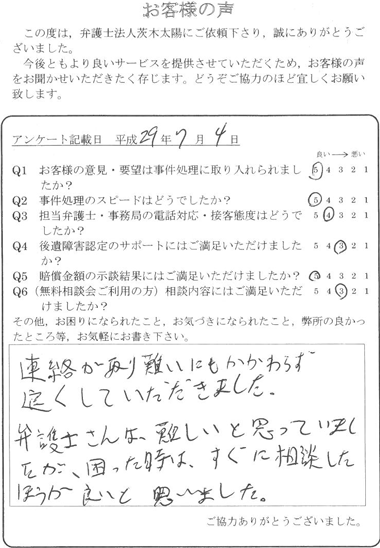 お客様の声
この度は，弁護士法人茨木太陽にご依頼下さり，誠にありがとうご
ざいました。
今後ともより良いサービスを提供させていただくため，お客様の声
をお聞かせいただきたく存じます。どうぞご協力のほど宜しくお願い
致します。
アンケート記載日 平成29年7月4日
良い → 悪い
Q1 お客様の意見・要望は事件処理に取り入れられまし 5 4 3 2 1
たか？
Q2 事件処理のスピードはどうでしたか？ 5 4 3 2 1
Q3 担当弁護士・事務局の電話対応・接客態度はどうで 5 4 3 2 1
したか？
Q4 後遺障害認定のサポートにはご満足いただけました 5 4 3 2 1
か？
Q5 賠償金額の示談結果にはご満足いただけましたか？ 5 4 3 2 1
Q6（無料相談会ご利用の方）相談内容にはご満足いただ 5 4 3 2 1
けましたか？
その他，お困りになられたこと，お気づきになられたこと，弊所の良かっ
たところ等，お気軽にお書き下さい。
連絡が取り難いにもかかわらず
良くしていただきました。
弁護士さんは、難しいと思っていまし
たが、困った時は、すぐに相談した
ほうが良いと思いました。
ご協力ありがとうございました。